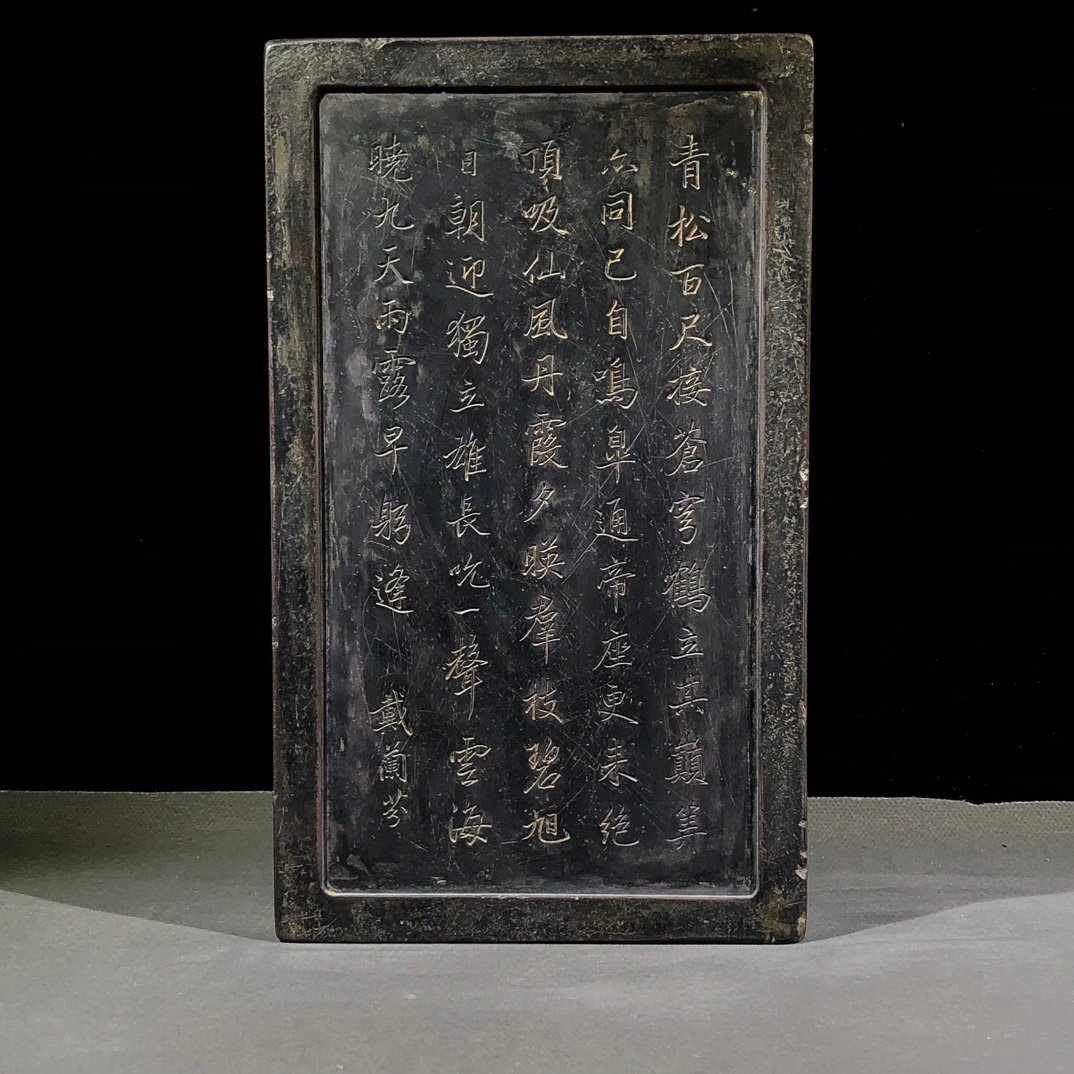 青松百尺接蒼穹鶴立其巔筭
亦同已自鳴皐通帝座更来絶
頂吸仙風丹霞夕暎羣枝碧旭
日朝迎獨立雄長吭一聲雲海
曉九天雨露早躬逢 戴蘭芬